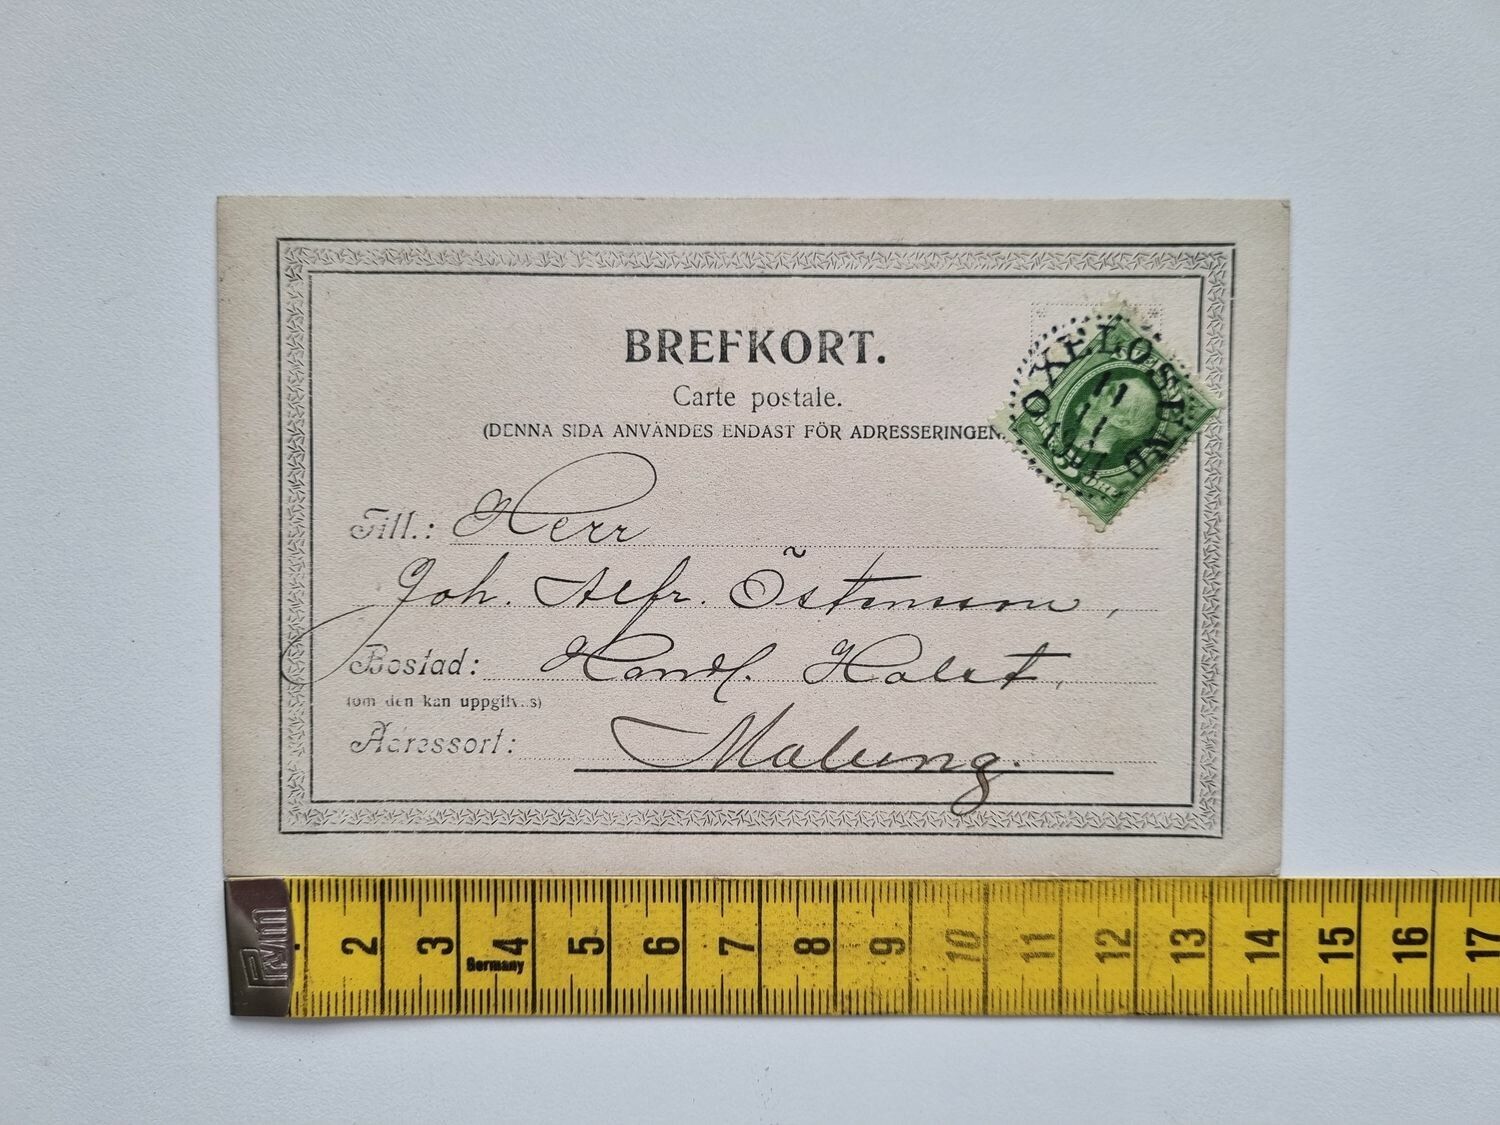 BREFKORT.
Carte postale.
(DENNA SIDA ANVÄNDES ENDAST FÖR ADRESSERINGEN.
OXELÖSUND
11
11
Till.: Herr
Joh. Alfr. Östensson,
Bostad: Handl. Holst,
(om den kan uppgifvas)
Adressort: Malung.
2 3 4 5 6 7 8 9 10 11 12 13 14 15 16 17
Germany